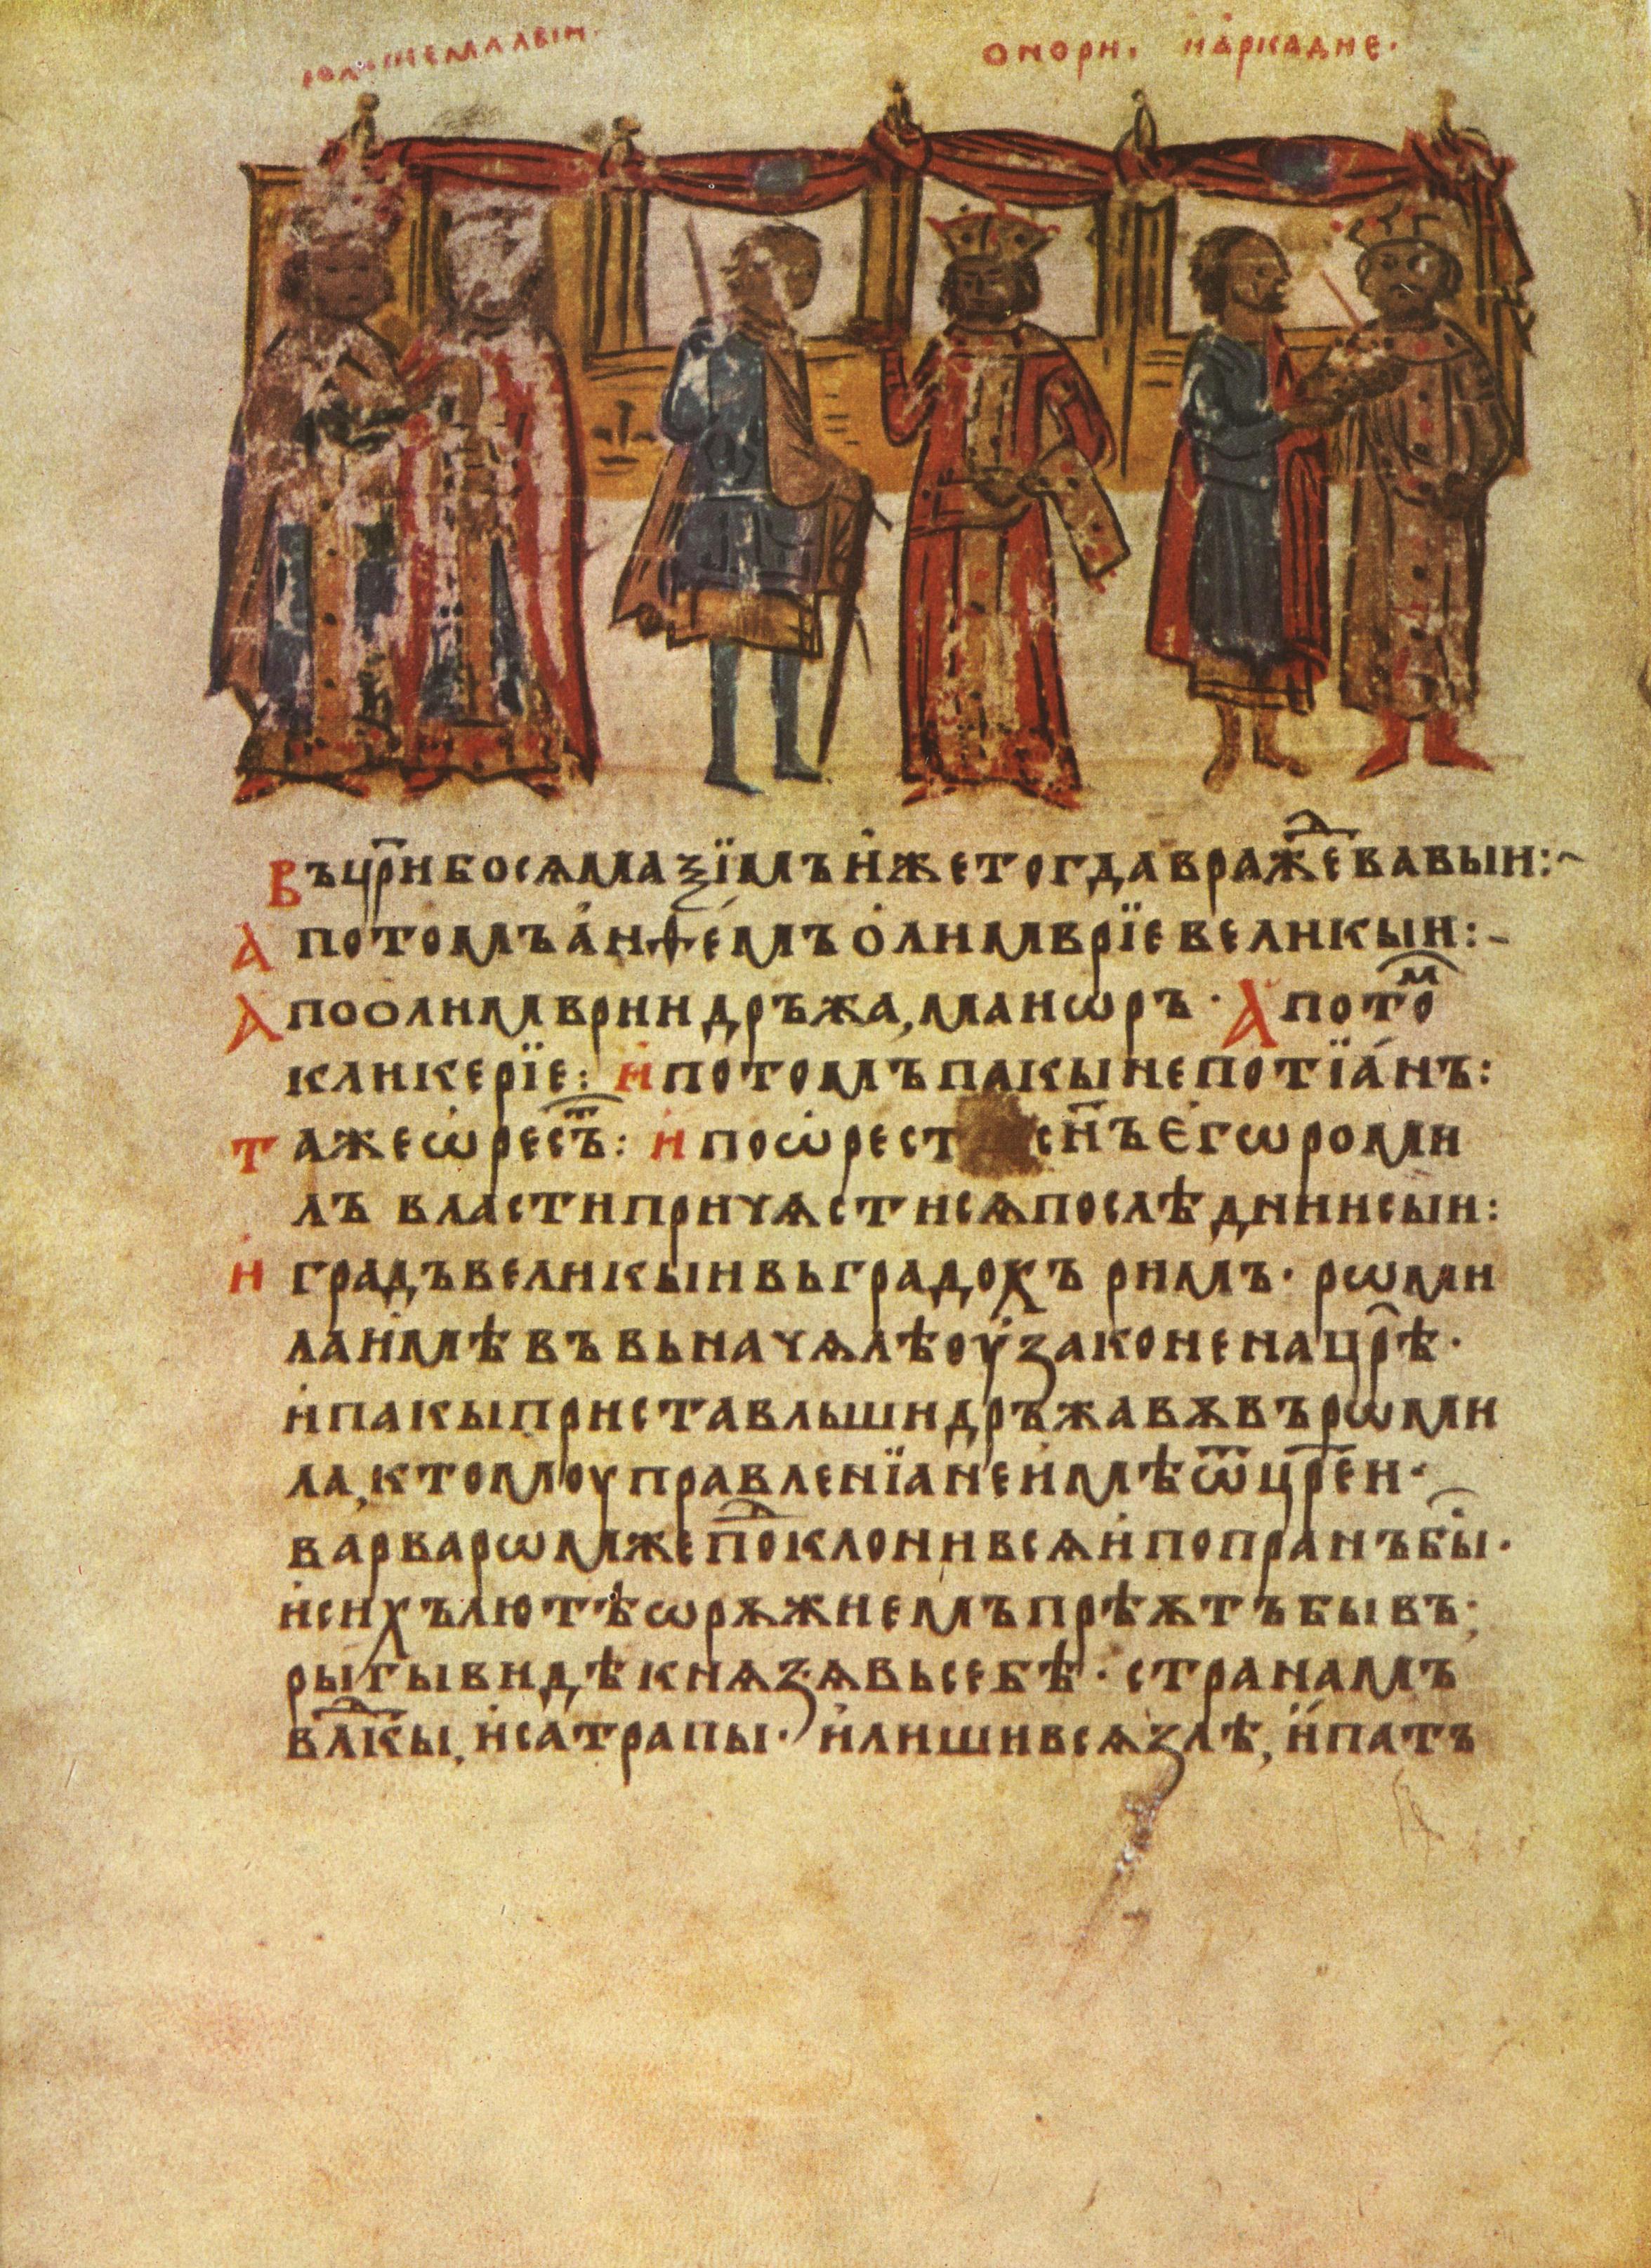 онори. наркадие.
Въцр҃ибосѧмаѯїмъи҆жетогдавраж҃ⷣевавыи:~
Апотомъа҆нѳе҆мъѻ҆лимврїевеликыи:-
Апоолимвриидръжа,маиѡръ· Апотоⷨ
кликерїе: и҆потомъпакынепотїа҆нъ:
тажеѡ҆рестъ: и҆поѡ҆рест сн҃ъе҆гѡроми
лъ властипричѧстисѧпослѣдниисыи:
и҆ градъвеликыивьградохъ римъ· рѡми
лаи҆мѣвъвьначѧлѣоу҆законенацр҃ѣ·
и҆пакыприставльшидръжавѫвърѡми
ла,ктомоуправленїанеи҆мѣѿцр҃еи·
варварѡмжепⷣоклонивсѧи҆попранъбы·
и҆сихълютѣѡрѫжиемъпрѣѫтъбывъ;
рыгывидѣкнѧзѧвьсебѣ· странамъ
влⷣкы,и҆сатрапы· и҆лишивсѧзлѣ,и҆патъ